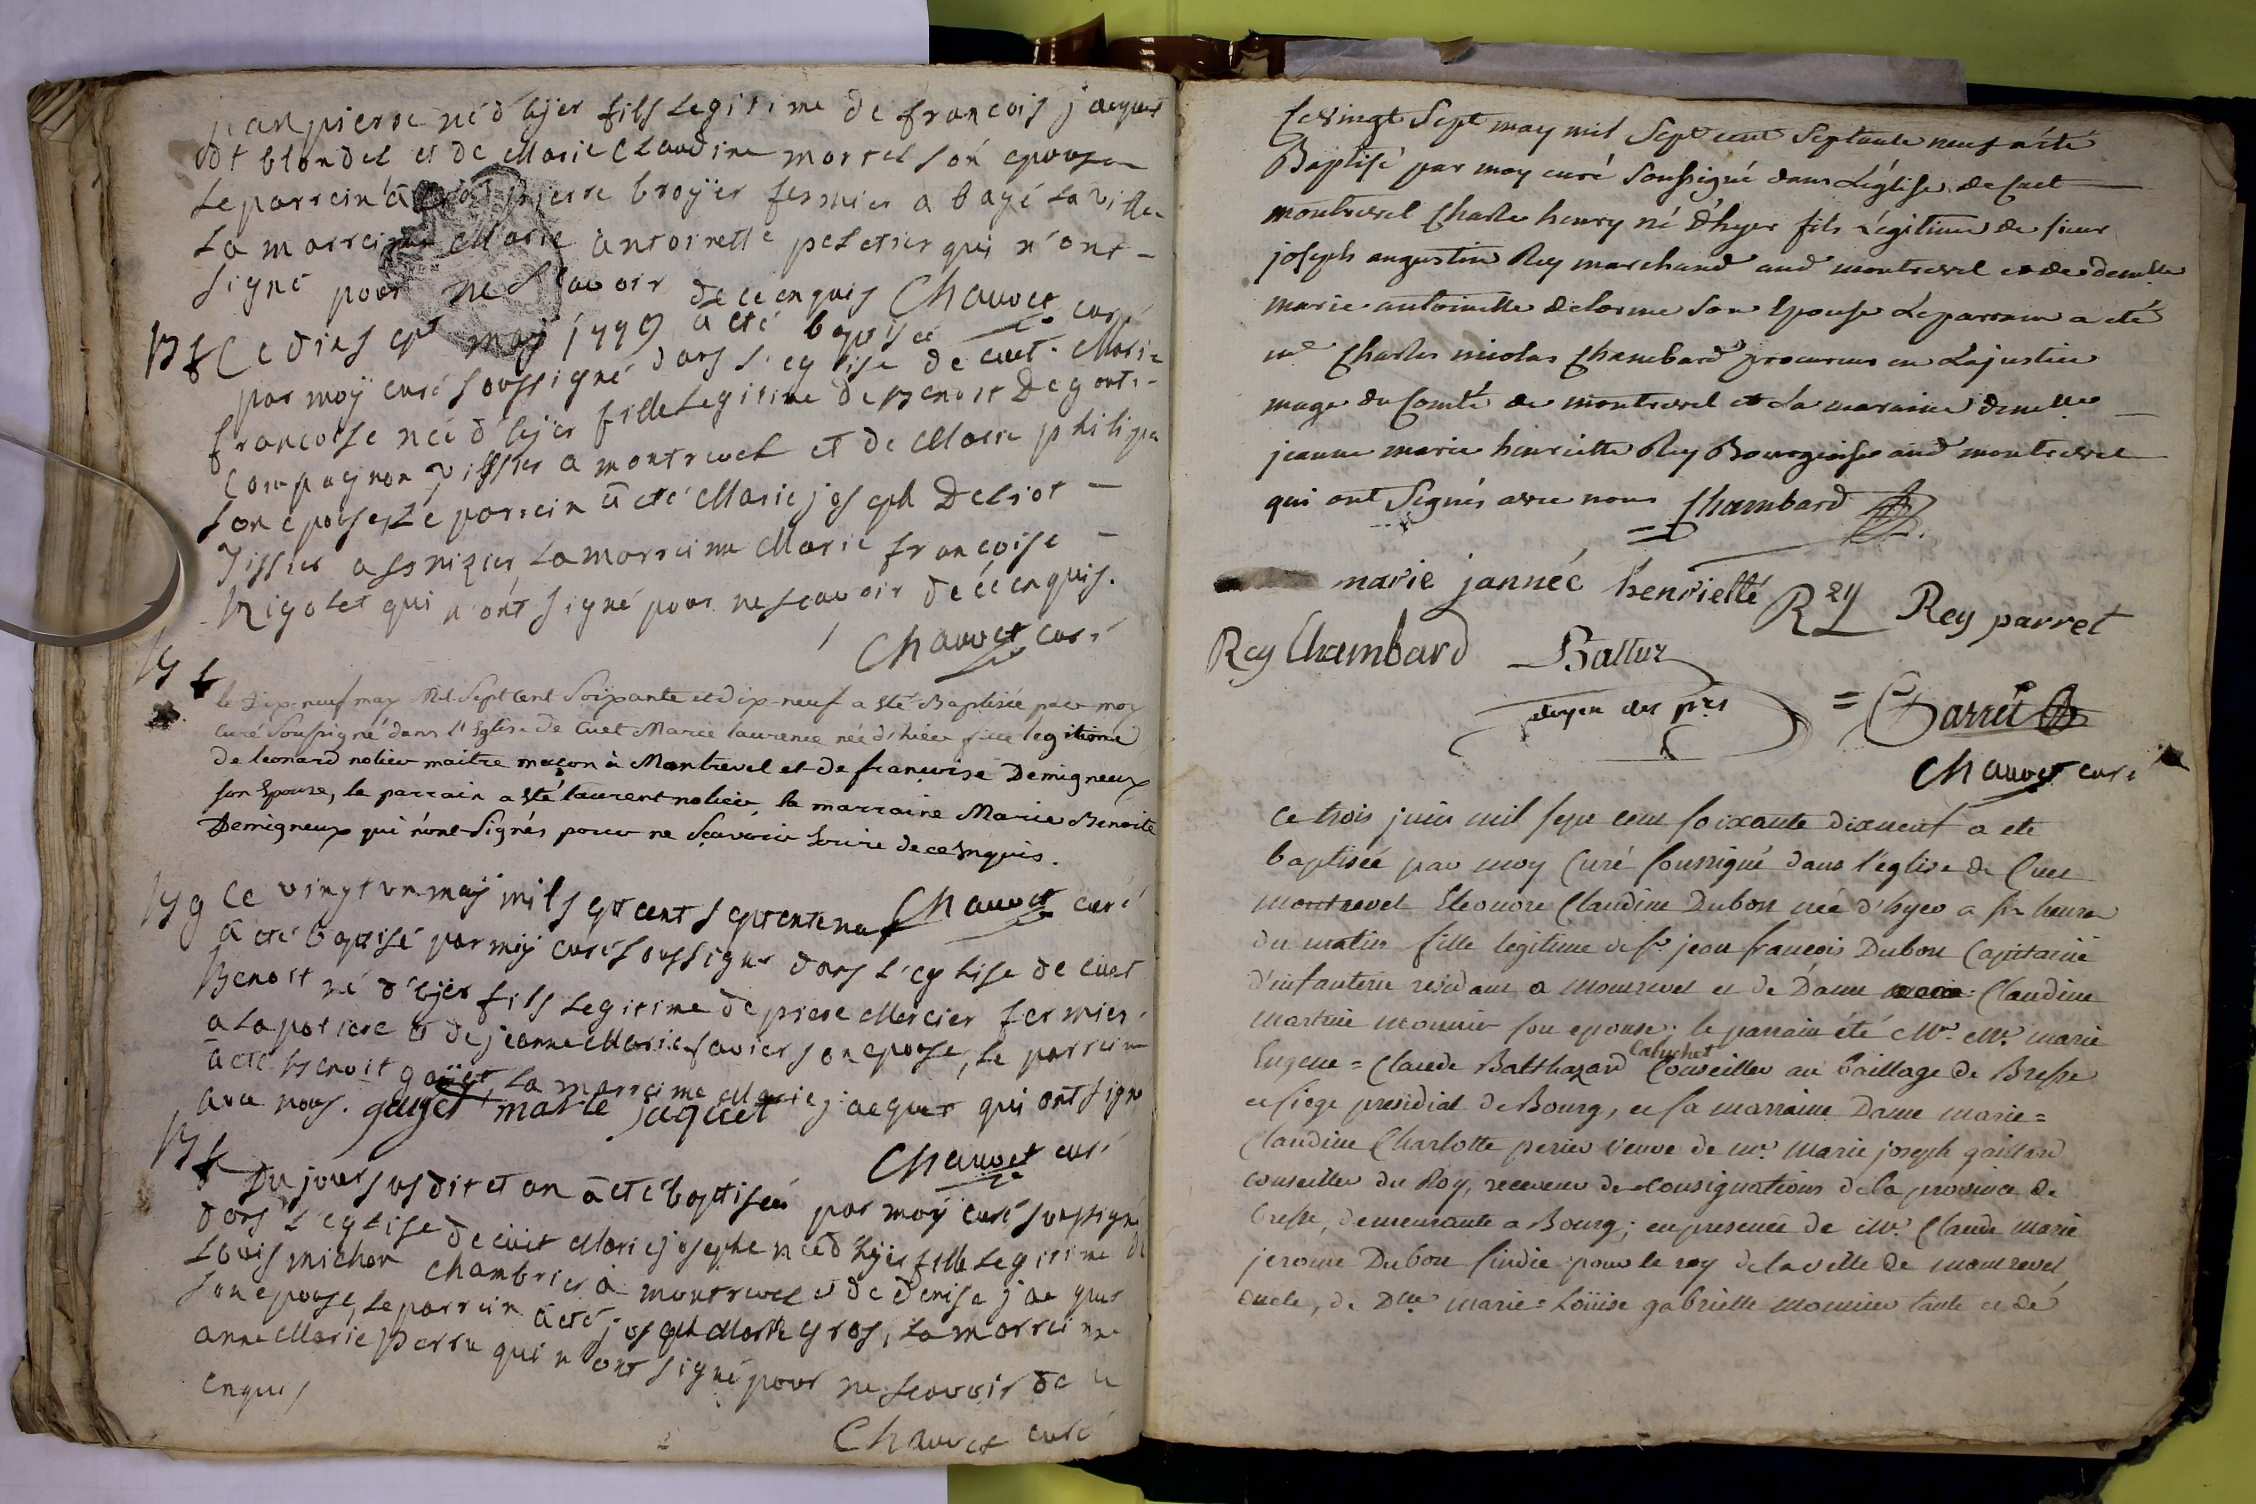 jean pierre né d'hÿer fils Legitime de francois jacques
dt blondel et de Marie Claudine morrel son epouse
Le parrein à été pierre broÿer fermier a bagé La ville
La marreine Marie antoinette peletier qui n'ont
signé pour ne scavoir de ce enquis Chauvet curé
B f Ce dix sept maÿ 1779 a été baptisée
par moÿ curé soussigné dans l'eglise de cuet Marie
francoise née d'hÿer fille Legitime de Benoit Degout
Compagnon tissier a montrevel et de Marie philipe
son epouse, Le parrein à été Marie joseph Deliot
Tissier a st nizier La marreine Marie francoise
Rigolet qui n'ont signé pour ne scavoir de ce enquis.
Chauvet curé
B f
le dix-neuf may Mil Sept Cent Soixante et dix-neuf a été Baptisée par moy
Curé Soussigné dans l'Eglise de Cuet Marie laurence née d'hier fille legitime
de leonard nolieu maitre maçon à Montrevel et de françoise Demigneux
son Epouse, le parrain a été laurent nolieu la marraine Marie Benoite
Demigneux qui n'ont Signés pour ne Sçavoir Ecrire de ce Enquis.
Chauvet curé
B g Ce vingt un maÿ mil sept cent septente neuf
à été baptisé par moÿ curé soussigné dans L'eglise de cuet
Benoit né d'hÿer fils Legitime de piere Mercier fermier
a La potiere et de jeanne Marie favier son epouse, Le parrein
à été Benoit gaÿet, La marreine Marie jacquet qui ont signé
avec nous. gayet marie jaquet
Chauvet curé
B f
Du jour susdit et an à été baptiseé par moÿ curé soussigné
dans L'eglise de cuet Marie josephe née d'hÿer fille Legitime de
Louis michon chambrier à montrevel et de denise jacquet
son epouse, Le parrein à été joseph Marie gros, La marreine
anne Marie perru qui n'ont signé pour ne scavoir de ce
enquis
Chauvet curé
Le vingt Sept may mil Sept cent Septante neuf a été
Baptisé par moy curé Soussigné dans L'église de Cuet
montrevel Charles henry né d'hyer fils Légitime de sieur
joseph augustin Rey marchand aud montrevel et de demlle
marie antoinette delorme son Epouse Le parrain a été
me Charles nicolas Chambard procureur en La justice
mage du Comté de montrevel et La maraine demlle
jeanne marie henriette Rey Bourgeoise aud montrevel
qui ont Signés avec nous Chambard
marie jannée henriette Rey Rey parret
Rey Chambard Battur
doyen des prs
Barret
Chauvet curé
Ce trois juin mil sept cent soixante dixneuf a eté
baptisée par moy Curé soussigné dans l'eglise de Cuet
montrevel Eleonore Claudine Dubost née d'hyer a six heures
du matin fille legitime de sr jean françois Dubost Capitaine
d'infanterie residant a Montrevel et de Dame Claudine
Martine Monnier son epouse; le parrain été Mr Mr marie
Eugene = Claude Balthazard Caluchet Conseiller au baillage de Bresse
et siege presidial de Bourg, et sa marraine Dame marie =
Claudine Charlotte perier veuve de mr. marie joseph gaillard
conseiller du Roy, receveur des consignations de la province de
bresse, demeurante a Bourg; en presence de Mr. Claude marie
jerome Dubost sindic pour le roy de la ville de montrevel
oncle, de Dlle marie = Loüise gabrielle monnier tante et de